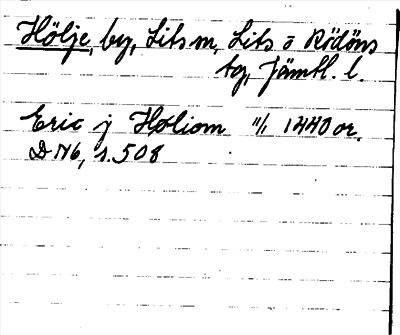 Hölje, by, Lits sn, Lits o Rödöns
tg, Jämtl. l.
Eric j Holiom 11/1 1440 or.
DN16, s. 508